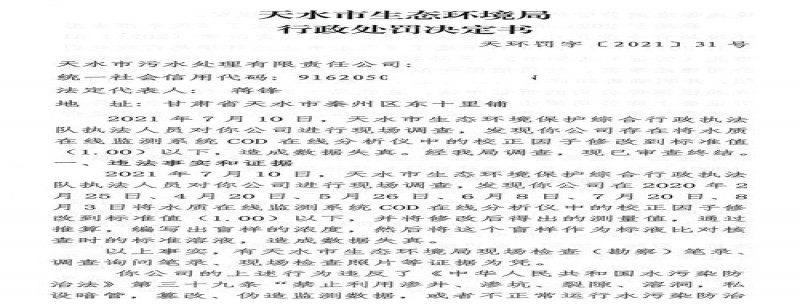 天水市生态环境局
行政处罚决定书
天环罚字〔2021〕31号
天水市污水处理有限责任公司：
统一社会信用代码：9162050
法定代表人：蒋锋
地 址：甘肃省天水市秦州区东十里铺
2021年7月10日，天水市生态环境保护综合行政执法
队执法人员对你公司进行现场调查，发现你公司存在将水质
在线监测系统COD在线分析仪中的校正因子修改到标准值
（1.00）以下，造成数据失真。经我局调查，现已审查终结。
一、违法事实和证据
2021年7月10日，天水市生态环境保护综合行政执法
队执法人员对你公司进行现场调查，发现你公司在2020年2
月25日、4月20日、5月26日、6月8日、7月20日、8
月3日将水质在线监测系统COD在线分析仪中的校正因子修
改到标准值（1.00）以下，并将修改后得出的测量值，通过
推算，编写出盲样的浓度，然后将这个盲样作为标液比对核
查时的标准溶液，造成数据失真。
以上事实，有天水市生态环境局现场检查（勘察）笔录、
调查询问笔录、现场检查照片等证据为凭。
你公司的上述行为违反了《中华人民共和国水污染防
治法》第三十九条“禁止利用渗井、渗坑、裂隙、溶洞，私
设暗管，篡改、伪造监测数据，或者不正常运行水污染防治